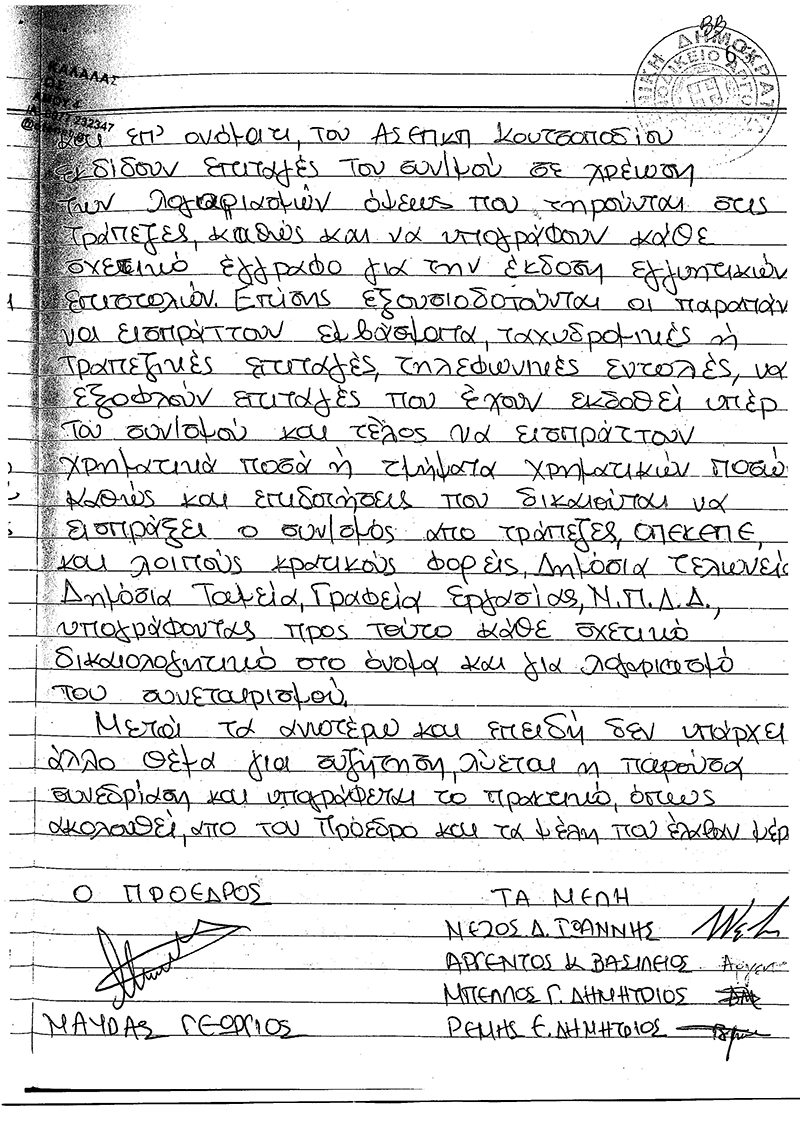 ΒΒ
6
ΝΙΚΗ ΔΗΜΟΚΡΑΤ
ΚΑΛΑΛΑΣ
και επ' ονόματι, του ΑΣΕΠΚΗ Κουτσοποδίου
εκδίδουν επιταγές του συν/σμού σε χρέωση
των λογαριασμών όψεως που τηρούνται στις
τράπεζες, καθώς και να υπογράφουν κάθε
σχετικό έγγραφο για την έκδοση εγγυητικών
επιστολών. Επίσης εξουσιοδοτούνται οι παραπάν
να εισπράττουν εμβάσματα, ταχυδρομικές ή
τραπεζικές επιταγές, τηλεφωνικές εντολές, να
εξοφλούν επιταγές που έχουν εκδοθεί υπέρ
του συν/σμού και τέλος να εισπράττουν
χρηματικά ποσά ή τμήματα χρηματικών ποσώ
καθώς και επιδοτήσεις που δικαιούται να
εισπράξει ο συν/σμός απο τράπεζες, ΟΠΕΚΕΠΕ,
και λοιπούς κρατικούς φορείς, Δημόσια τελωνεία
Δημόσια Ταμεία, Γραφεία Εργασίας, Ν.Π.Δ.Δ.,
υπογράφοντας προς τούτο κάθε σχετικό
δικαιολογητικό στο όνομα και για λογαριασμό
του συνεταιρισμού.
Μετά τα ανωτέρω και επειδή δεν υπάρχει
άλλο θέμα για συζήτηση, λύεται η παρούσα
συνεδρίαση και υπογράφεται το πρακτικό, όπως
ακολουθεί, απο τον Πρόεδρο και τα μέλη που έλαβαν μέρ
Ο ΠΡΟΕΔΡΟΣ
ΤΑ ΜΕΛΗ
ΝΕΖΟΣ Δ. ΙΩΑΝΝΗΣ
ΑΡΓΕΝΤΟΣ Κ. ΒΑΣΙΛΕΙΟΣ
ΜΠΕΛΛΟΣ Γ. ΔΗΜΗΤΡΙΟΣ
ΜΑΥΡΑΣ ΓΕΩΡΓΙΟΣ
ΡΕΜΗΣ Ε. ΔΗΜΗΤΡΙΟΣ